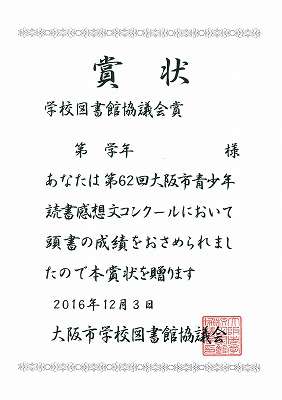 賞状
学校図書館協議会賞
第 学年 様
あなたは第62回大阪市青少年
読書感想文コンクールにおいて
頭書の成績をおさめられまし
たので本賞状を贈ります
2016年12月3日
大阪市学校図書館協議会